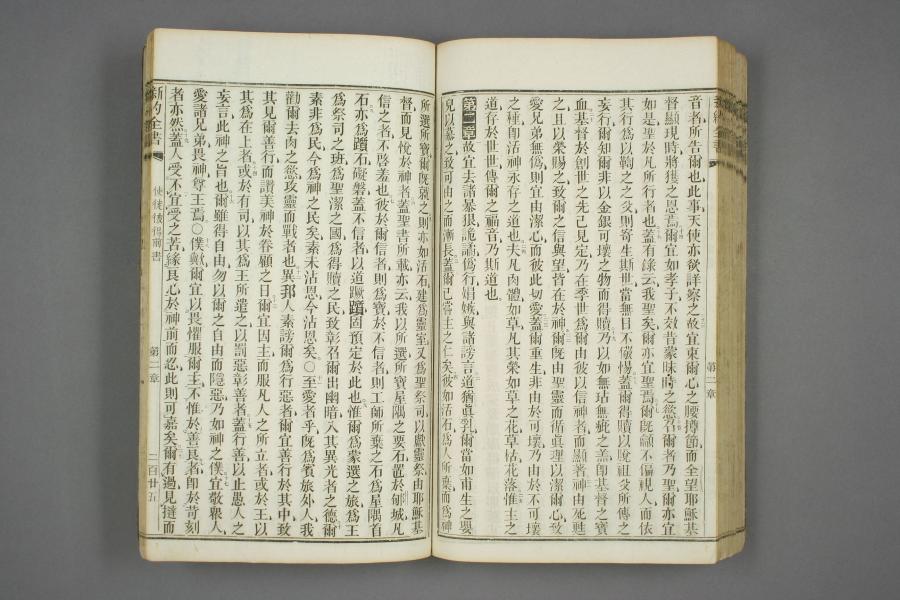 音者所告爾也此事天使亦欲詳察之故宜束爾心之腰撙節而全望耶穌基
督顯現時將獲之恩焉爾宜如孝子不效昔蒙昧時之慾召爾者乃聖爾亦宜
如是聖於凡所行者也蓋有錄云我聖矣爾亦宜聖焉爾旣籲不偏視人而依
其行爲以鞫之之父則寄生斯世當無日不儆惕蓋爾得贖以脫祖父所傳之
妄行爾知爾非以金銀可壞之物而得贖乃以如無玷無疵之羔卽基督之寶
血基督於創世之先已見定乃在季世爲爾由彼以信神者而顯著神由死甦
之且以榮賜之致爾之信與望皆在於神爾旣由聖靈而循眞理以潔爾心致
愛兄弟無僞則宜由潔心而彼此切愛蓋爾重生非由於可壞乃由於不可壞
之種卽活神永存之道也夫凡肉體如草凡其榮如草之花草枯花落惟主之
道存於世世傳爾之福音乃斯道也
第二章故宜去諸暴狠詭譎僞行娼嫉與諸謗言道猶眞乳爾當如甫生之嬰
兒以慕之致可由之而漸長蓋爾已嘗主之仁矣彼如活石爲人所棄而爲神
第二章
所選所寶爾旣就之則亦如活石建爲靈室又爲聖祭司以獻靈祭由耶穌基
督而見悅於神者蓋聖書所載亦云我以所選所寶屋隅之要石置於郇城凡
信之者不啓羞也彼於爾信者則爲寶於不信者則工師所棄之石爲屋隅首
石亦爲躓石礙磐蓋不信者以道蹶躓固預定於此也惟爾爲蒙選之族爲王
爲祭司之班爲聖潔之國爲得贖之民致彰召爾出幽暗入其異光者之德爾
素非爲民今爲神之民矣素未沾恩今沾恩矣○至愛者乎旣爲賓旅外人我
勸爾去肉之慾攻靈而戰者也異邦人素謗爾爲行惡者爾宜善行於其中致
其見爾善行而讚美神於眷顧之日爾宜因主而服凡人之所立者或於王以
其爲在上者或於有司以其爲王所遣之以罰惡彰善者蓋行善以止愚人之
妄言此神之旨也爾雖得自由勿以爾之自由而隱惡乃如神之僕宜敬衆人
愛諸兄弟畏神尊王焉○僕歟爾宜以畏懼服爾主不惟於善良者卽於苛刻
者亦然蓋人受不宜受之苦緣良心於神前而忍此則可嘉矣爾有過見撻而
新約全書
使徒彼得前書
第二章
二百廿五